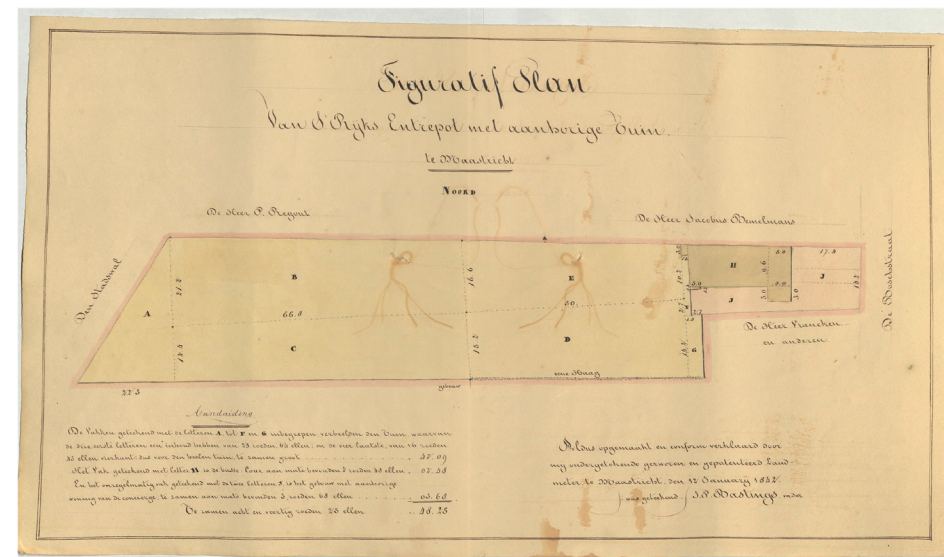 Figuratif Plan
Van S'Ryks Entrepot met aanhorige Tuin.
te Maastricht
NOORD
De Heer P. Regout
De Heer Jacobus Bemelmans
Den Stadswal
De Boschstraat
A
B
C
E
D
H
J
J
66.8
50.
16.6
15.2
22.5
17.4
eene Haag
De Heer Vrancken
en anderen
Aanduiding
De Vakken geteekend met de letteren A tot F en G inbegrepen verbeelden den Tuin, waarvan
de drie eerste letteren een inhoud hebben van roeden ellen; en de vier laatste, van roeden
ellen vierkant; dus voor den heelen tuin te zamen groot
Het Vak geteekend met letter H is de basse Cour aan mate bevonden roeden ellen.
En het onregelmatig vak geteekend met de twee letteren J. is het gebouw met aanhorige
woning van de concierge te zamen aan mate bevonden roeden 68 ellen 03.68
Te zamen acht en veertig roeden 25 ellen 48.25
Aldus opgemaakt en conform verklaard door
my ondergeteekende gezworen en gepatenteerd Land-
meter te Maastricht, den 12 January 1842.
was geteekend J.P. Bastings